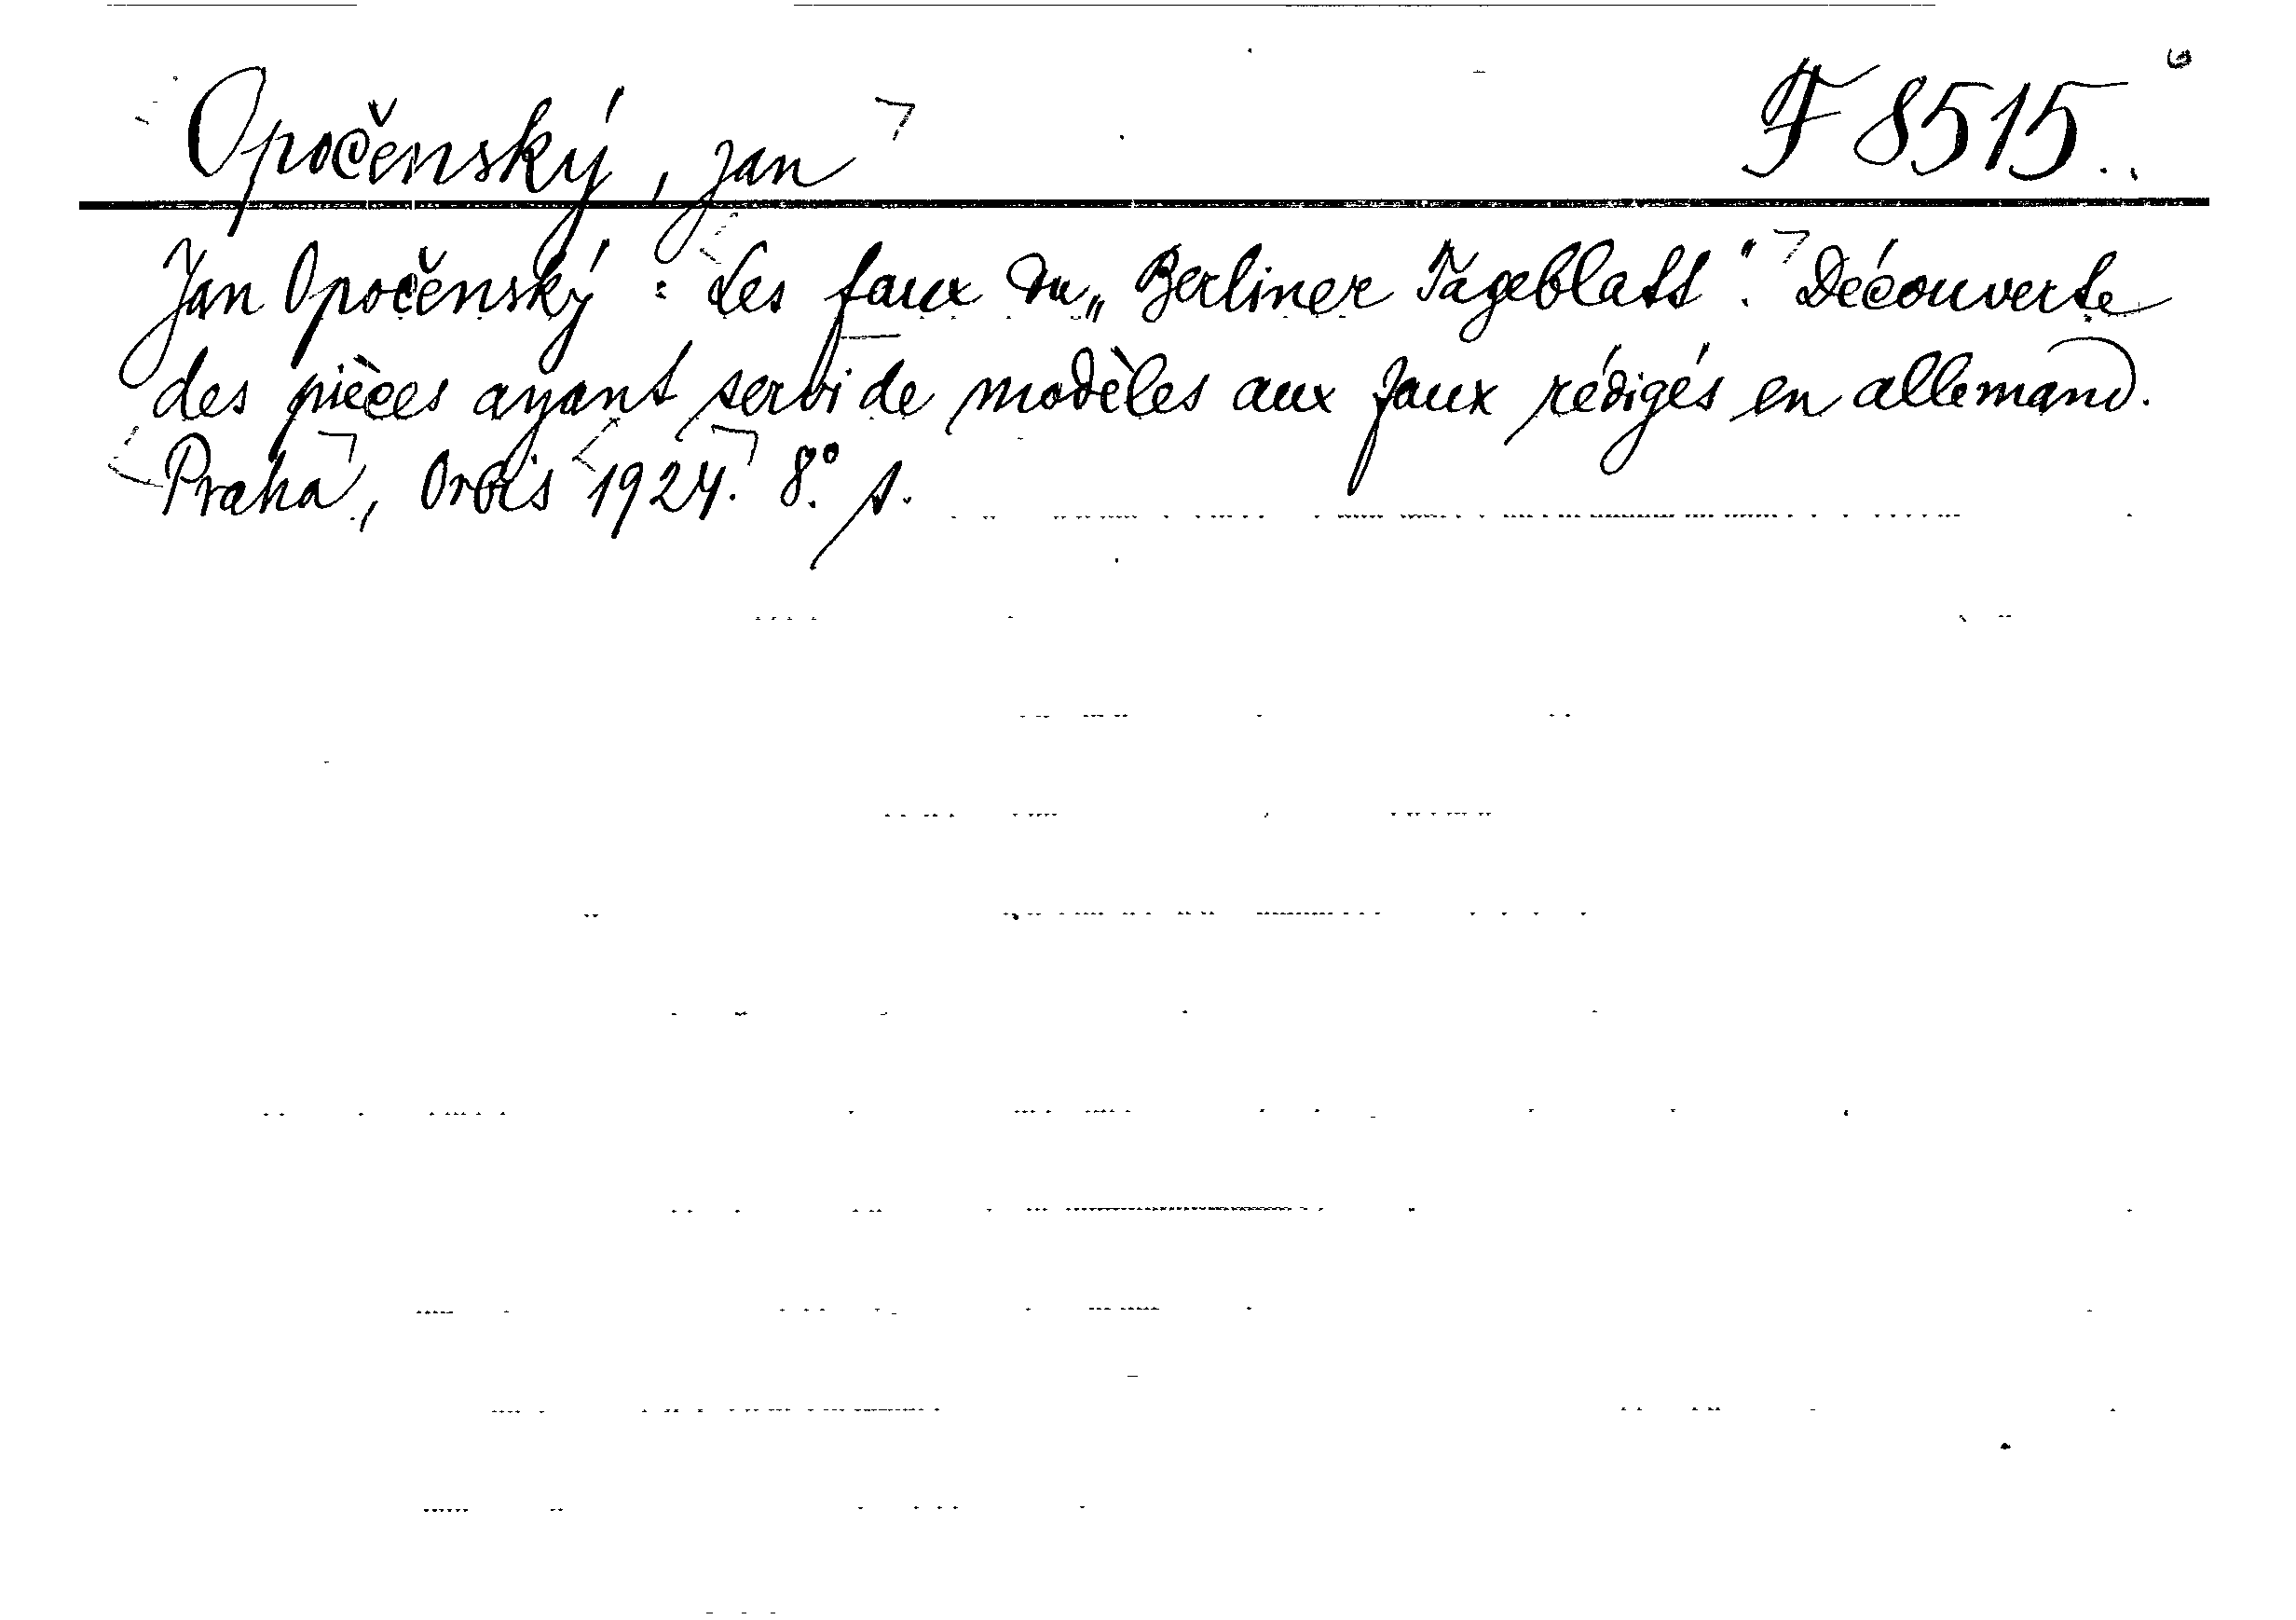 Opočenský, Jan F 8515.
Jan Opočenský: Les faux du „Berliner Tageblatt“. Découverte
des pièces ayant servi de modèles aux faux rédigés en allemand.
Praha, Orbis 1924. 8°. s.